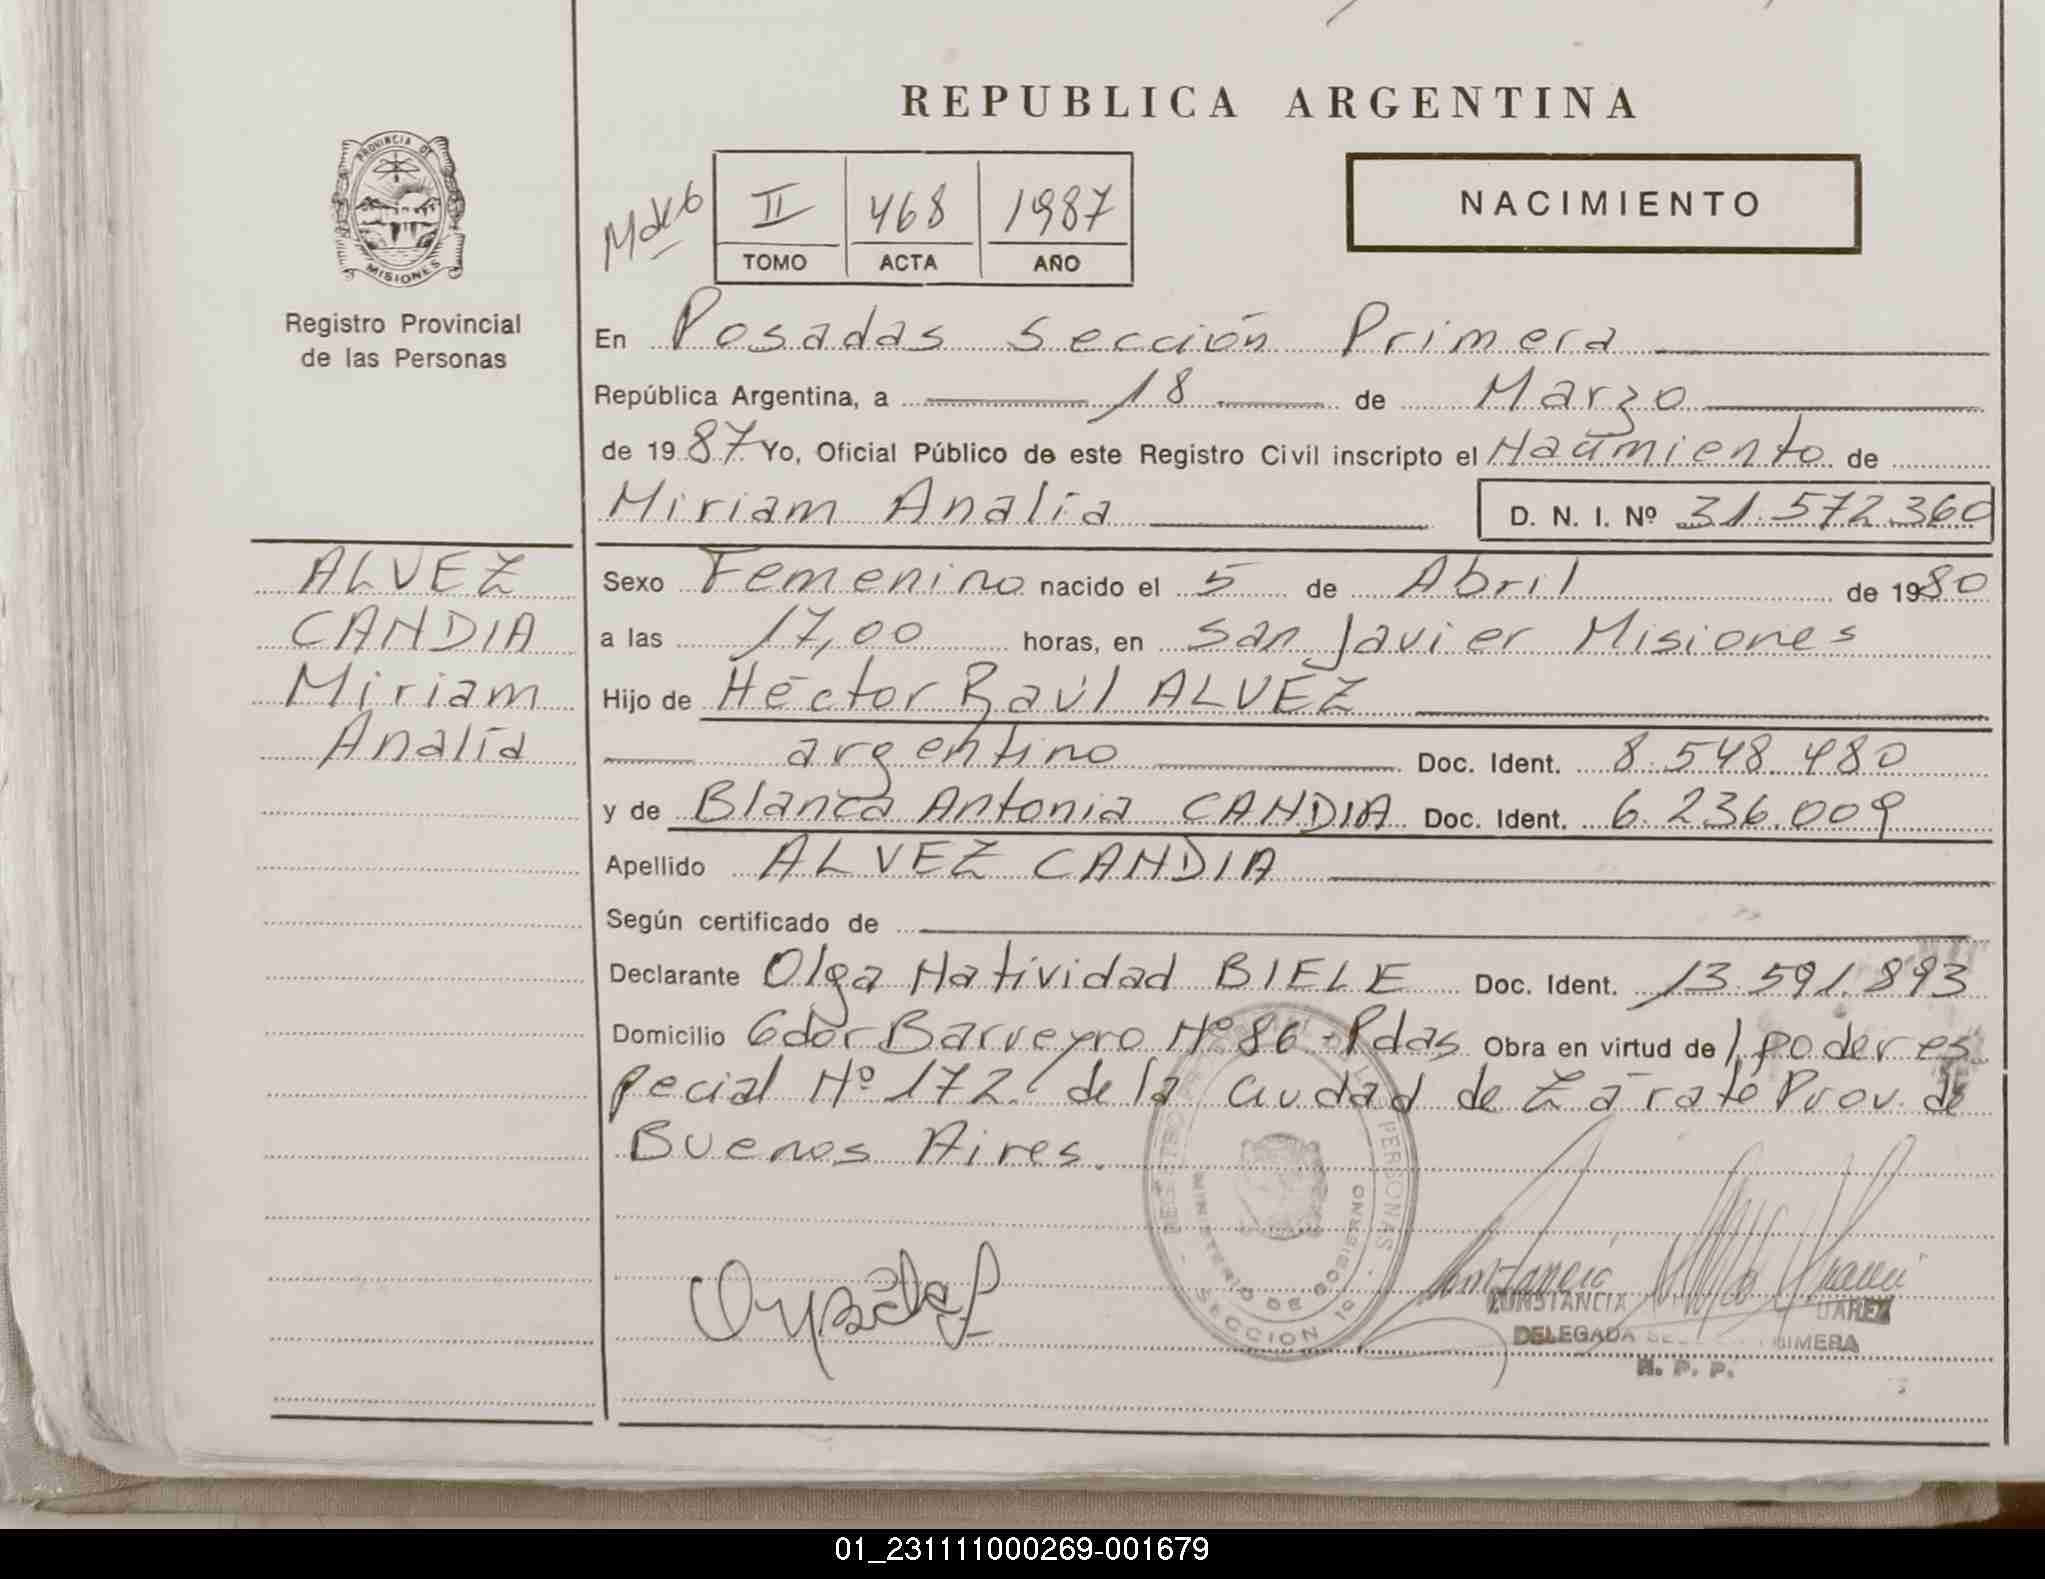 REPUBLICA ARGENTINA
PROVINCIA DE
MISIONES
Registro Provincial
de las Personas
II 468 1987
TOMO ACTA AÑO
NACIMIENTO
En Posadas Sección Primera
República Argentina, a 18 de Marzo
de 1987 Yo, Oficial Público de este Registro Civil inscripto el Nacimiento de
Miriam Analía D. N. I. Nº 31.572.360
ALVEZ
CANDIA
Miriam
Analía
Sexo Femenino nacido el 5 de Abril de 1980
a las 17,00 horas, en San Javier Misiones
Hijo de Héctor Raúl ALVEZ
argentino Doc. Ident. 8.548.480
y de Blanca Antonia CANDIA Doc. Ident. 6.236.009
Apellido ALVEZ CANDIA
Según certificado de
Declarante Olga Natividad BIELE Doc. Ident. 13.591.893
Domicilio Gdor Barreyro Nº 86 - Pdas Obra en virtud de 1 poder es
pecial Nº 172 de la Ciudad de Zárate Prov. de
Buenos Aires.
PERSONAS
MINISTERIO DE GOBIERNO
SECCION 1º
CONSTANCIA
DELEGADA
R. P. P.
01_231111000269-001679